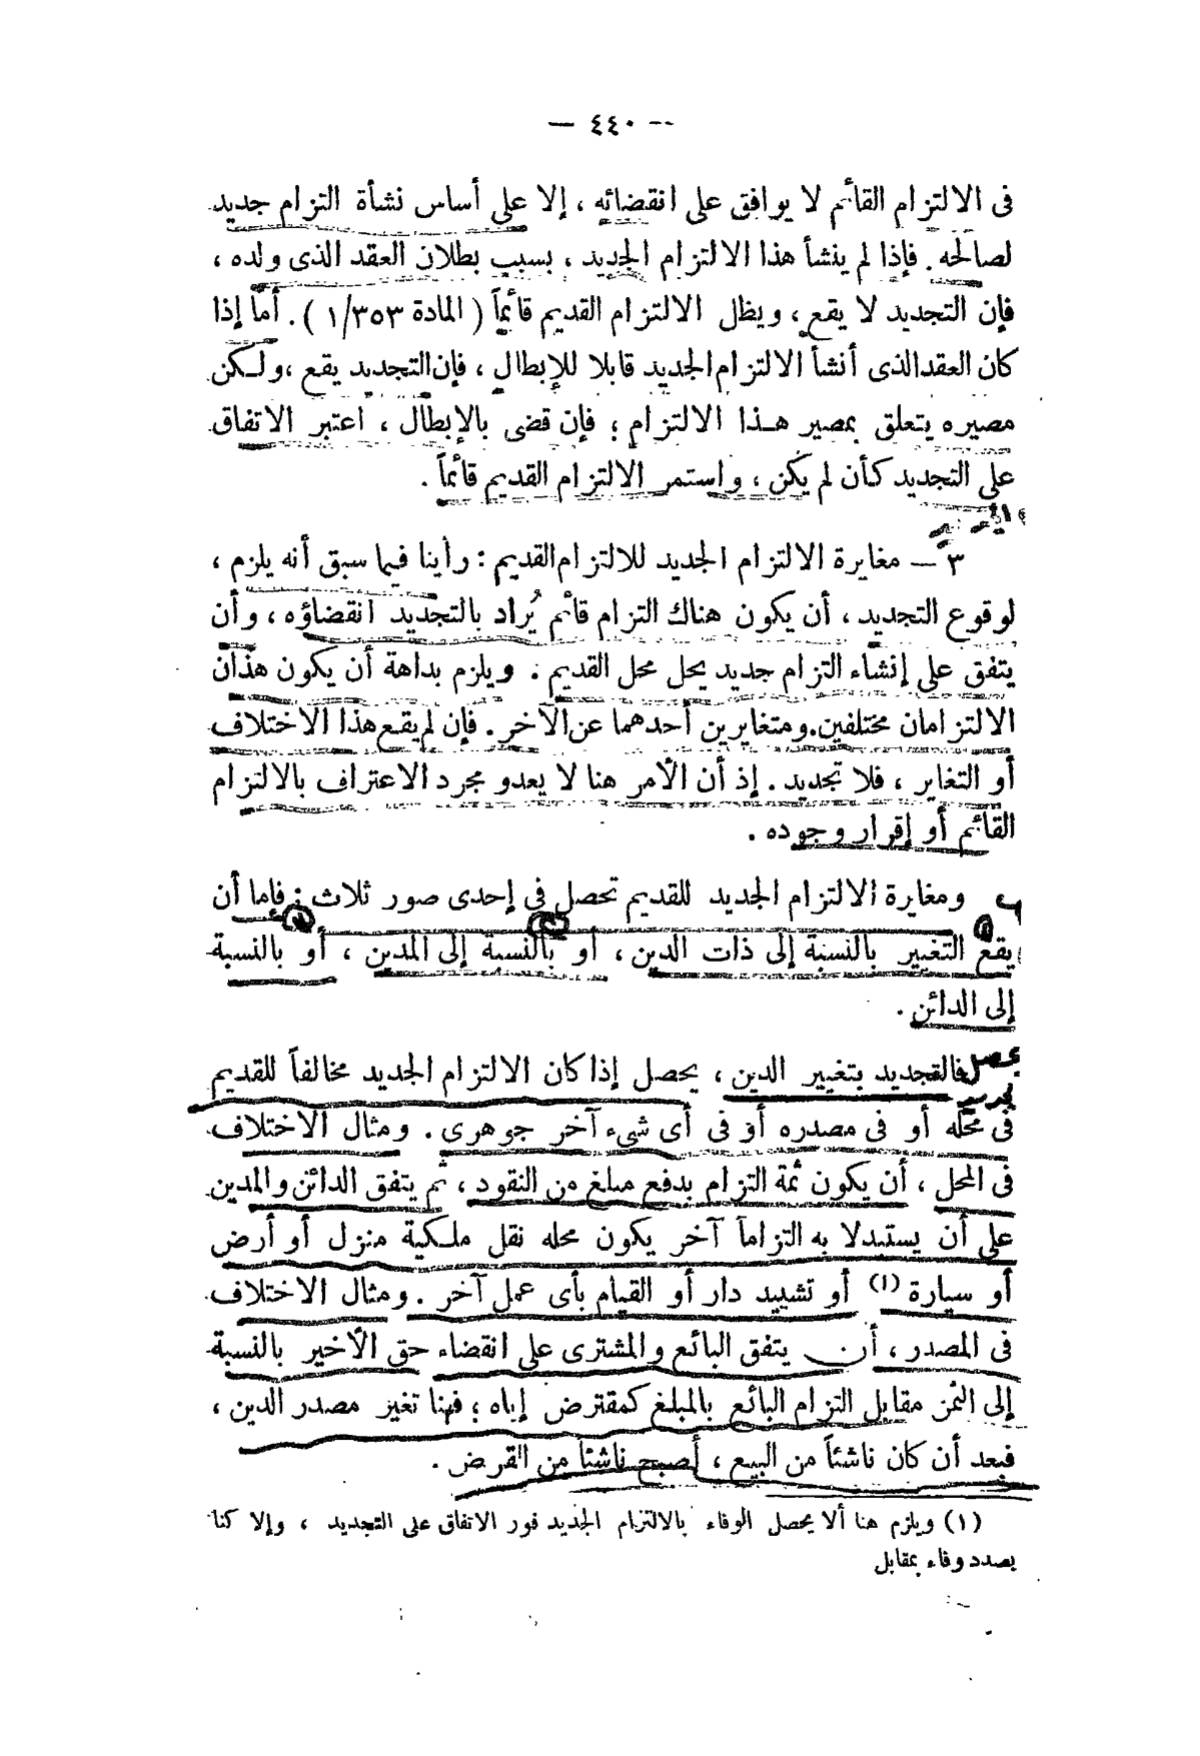 — ٤٤٠ —
فى الالتزام القائم لا يوافق على انقضائه ، إلا على أساس نشأة التزام جديد
لصالحه . فإذا لم ينشأ هذا الالتزام الجديد ، بسبب بطلان العقد الذى ولده ،
فإن التجديد لا يقع ، ويظل الالتزام القديم قائماً ( المادة ١/٣٥٣ ) . أما إذا
كان العقد الذى أنشأ الالتزام الجديد قابلا للإبطال ، فإن التجديد يقع ، ولكن
مصيره يتعلق بمصير هذا الالتزام ؛ فإن قضى بالإبطال ، اعتبر الاتفاق
على التجديد كأن لم يكن ، واستمر الالتزام القديم قائماً .
٣ — مغايرة الالتزام الجديد للالتزام القديم : رأينا فيما سبق أنه يلزم ،
لوقوع التجديد ، أن يكون هناك التزام قائم يُراد بالتجديد انقضاؤه ، وأن
يتفق على إنشاء التزام جديد يحل محل القديم . ويلزم بداهة أن يكون هذان
الالتزامان مختلفين ومتغايرين أحدهما عن الآخر . فإن لم يقع هذا الاختلاف
أو التغاير ، فلا تجديد . إذ أن الأمر هنا لا يعدو مجرد الاعتراف بالالتزام
القائم أو إقرار وجوده .
ومغايرة الالتزام الجديد للقديم تحصل فى إحدى صور ثلاث : فإما أن
يقع التغيير بالنسبة إلى ذات الدين ، أو بالنسبة إلى المدين ، أو بالنسبة
إلى الدائن .
فالتجديد بتغيير الدين ، يحصل إذا كان الالتزام الجديد مخالفاً للقديم
فى محله أو فى مصدره أو فى أى شىء آخر جوهرى . ومثال الاختلاف
فى المحل ، أن يكون ثمة التزام بدفع مبلغ من النقود ، ثم يتفق الدائن والمدين
على أن يستبدلا به التزاماً آخر يكون محله نقل ملكية منزل أو أرض
أو سيارة (١) أو تشييد دار أو القيام بأى عمل آخر . ومثال الاختلاف
فى المصدر ، أن يتفق البائع والمشترى على انقضاء حق الأخير بالنسبة
إلى الثمن مقابل التزام البائع بالمبلغ كمقترض إياه ؛ فهنا تغير مصدر الدين ،
فبعد أن كان ناشئاً من البيع ، أصبح ناشئاً من القرض .
(١) ويلزم هنا ألا يحصل الوفاء بالالتزام الجديد فور الاتفاق على التجديد ، وإلا كنا
بصدد وفاء بمقابل